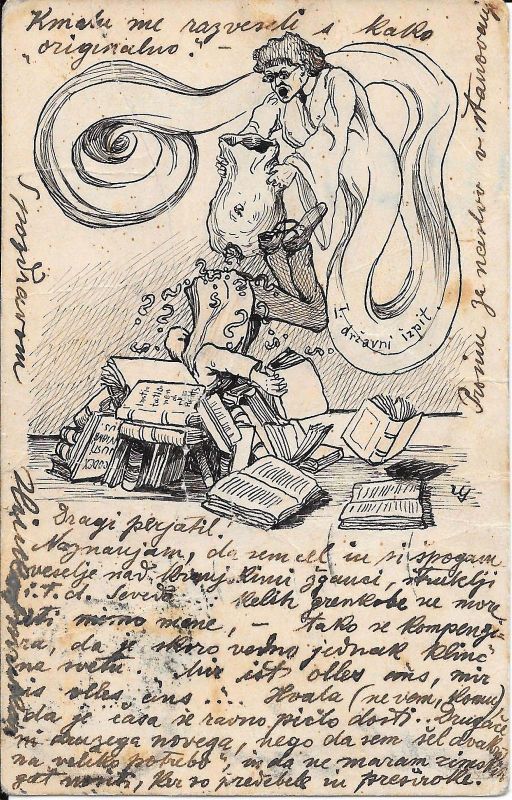 Kmalu me razveseli s kako
"originalno". –
Prosim za naslov v stanovanj
I. državni izpit.
CODEX
JUSTI
NIANE
US
Dragi prjatil!
Naznanjam, da sem cel in si špogam
veselje nad žganci, štruklji
i. t. d. Seveda kelih grenkobe ne more
iti memo mene, – tako se kompenzi-
ra, da je skoro vedno jednak klinč
na svetu. Mir ist olles ans, mir
is olles ans .... Hvala (ne vem, komu)
da je časa še ravno pičlo dosti. Drugače
ni druzega novega, nego da sem šel dvakrat
na veliko potrebo in da ne maram
nositi, ker so predebele in preširoke.